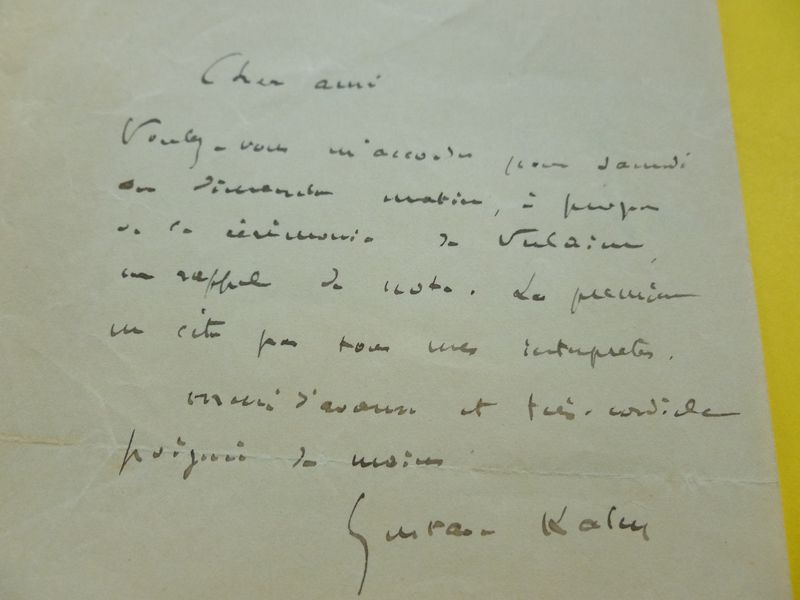 Cher ami
Voulez-vous m'accorder pour samedi
ou dimanche matin, à propos
de la cérémonie de Verlaine,
un rappel de note. La première
ne cite pas tous mes interprètes.
merci d'avance et très cordiale
poignée de mains
Gustave Kahn